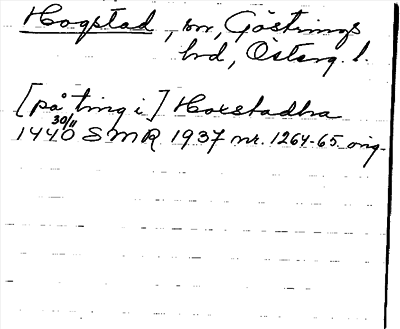 Hogstad, sn, Göstrings
hd, Österg. l.
[på ting i] Horstadha
30/11
1440 SMR 1937 nr. 1264-65 orig.